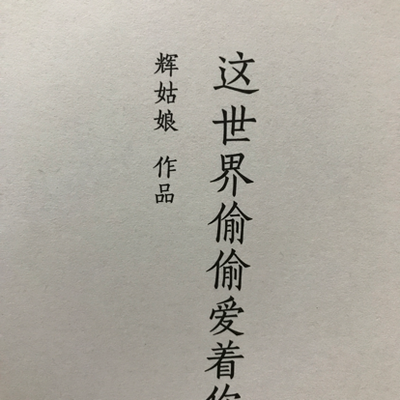 这世界偷偷爱着你
辉姑娘 作品